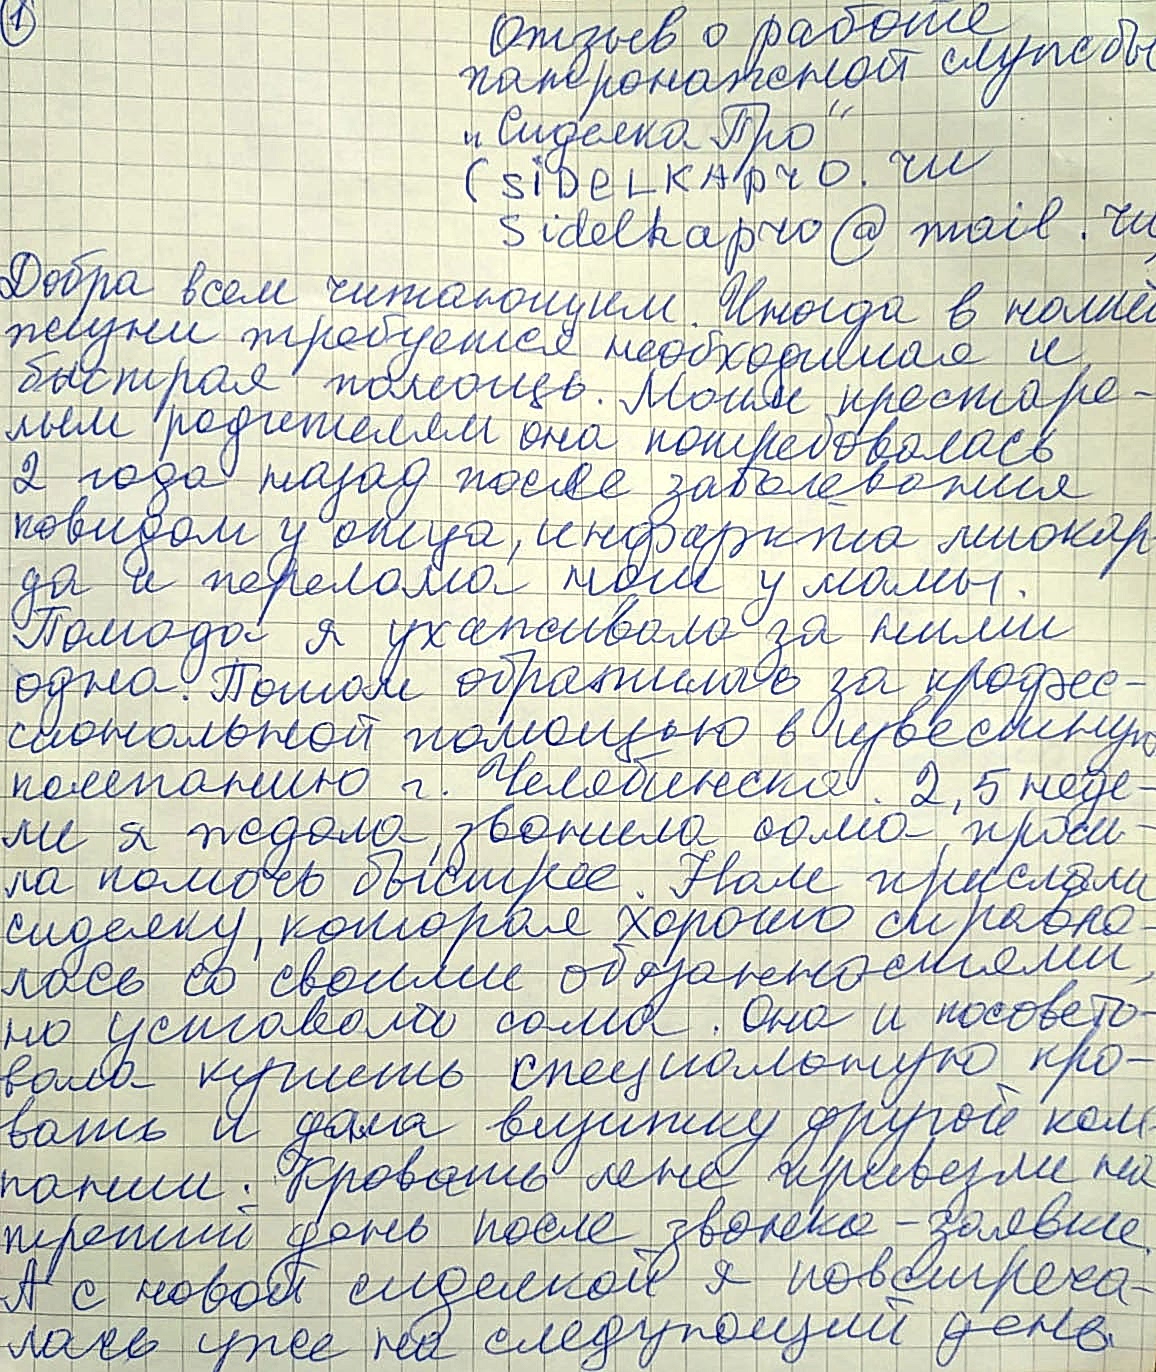 1
Отзыв о работе
патронажной службы
„Сиделка Про"
(SiDeLKAprO.ru
Sidelkapro@mail.ru
Добра всем читающим. Иногда в нашей
жизни требуется необходимая и
быстрая помощь. Моим престаре-
лым родителям она потребовалась
2 года назад после заболевания
ковидом у отца, инфаркта миокар-
да и перелома ноги у мамы.
Полгода я ухаживала за ними
одна. Потом обратилась за профес-
сиональной помощью в известную
компанию г. Челябинска. 2,5 неде-
ли я ждала, звонила сама, проси-
ла помочь быстрее. Нам прислали
сиделку, которая хорошо справля-
лась со своими обязанностями,
но уставала сама. Она и посовето-
вала купить специальную кро-
вать и дала визитку другой ком-
пании. Кровать мне привезли на
третий день после звонка-заявки.
А с новой сиделкой я повстреча-
лась уже на следующий день